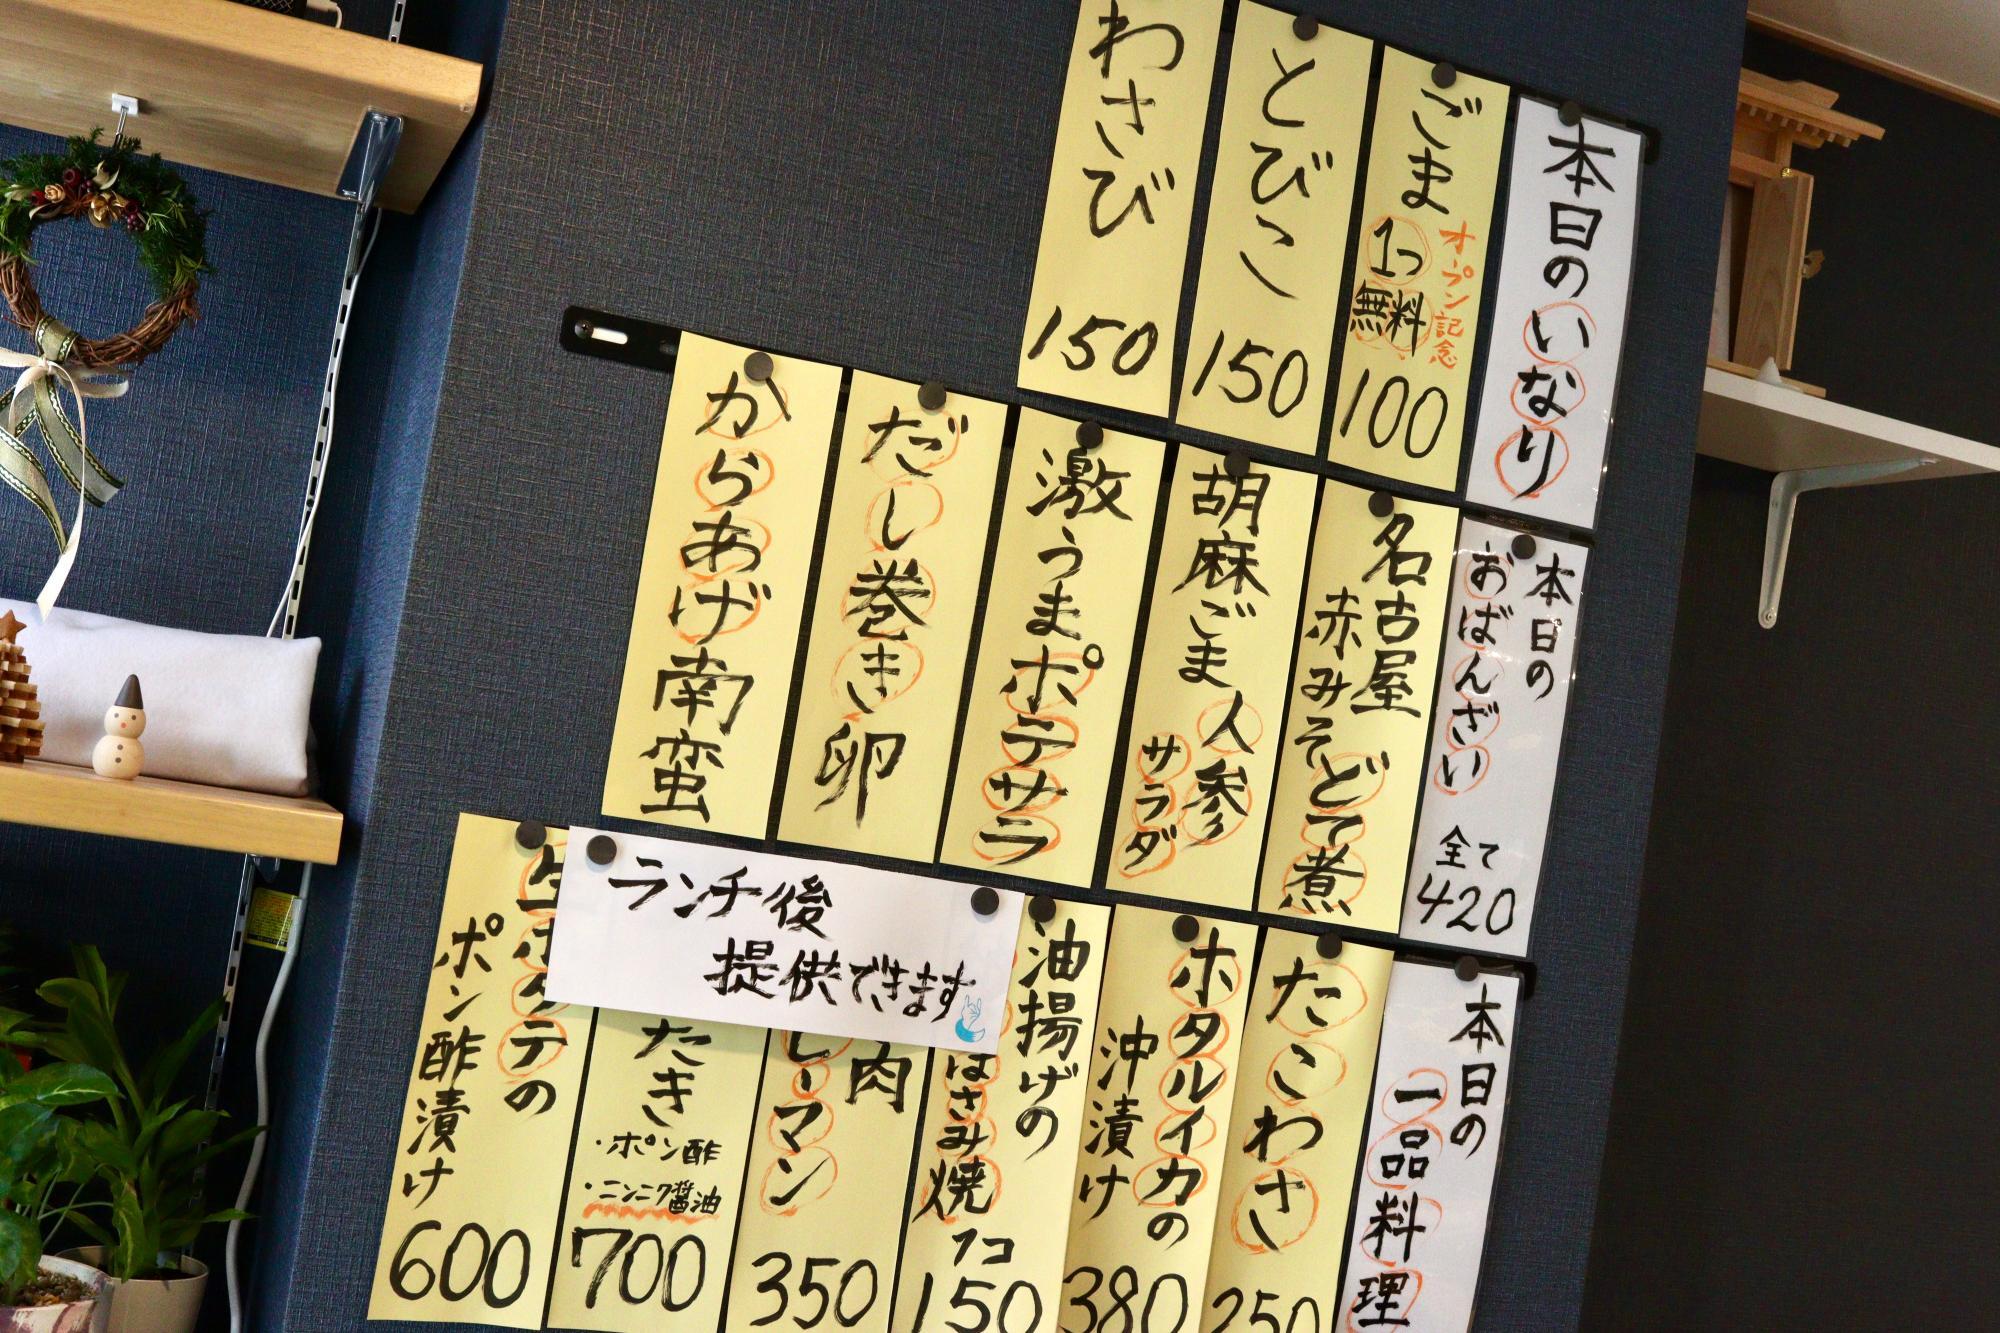 本日のいなり
ごま
オープン記念
1つ
無料
100
とびこ
150
わさび
150
本日の
おばんざい
全て
420
名古屋
赤みそどて煮
胡麻ごま
人参
サラダ
激うまポテサラ
だし巻き卵
からあげ南蛮
本日の
一品料理
たこわさ
250
ホタルイカの
沖漬け
380
油揚げの
はさみ焼
1コ
150
肉
ーマン
350
たき
・ポン酢
・ニンニク醤油
700
ランチ後
提供できます
テの
ポン酢漬け
600